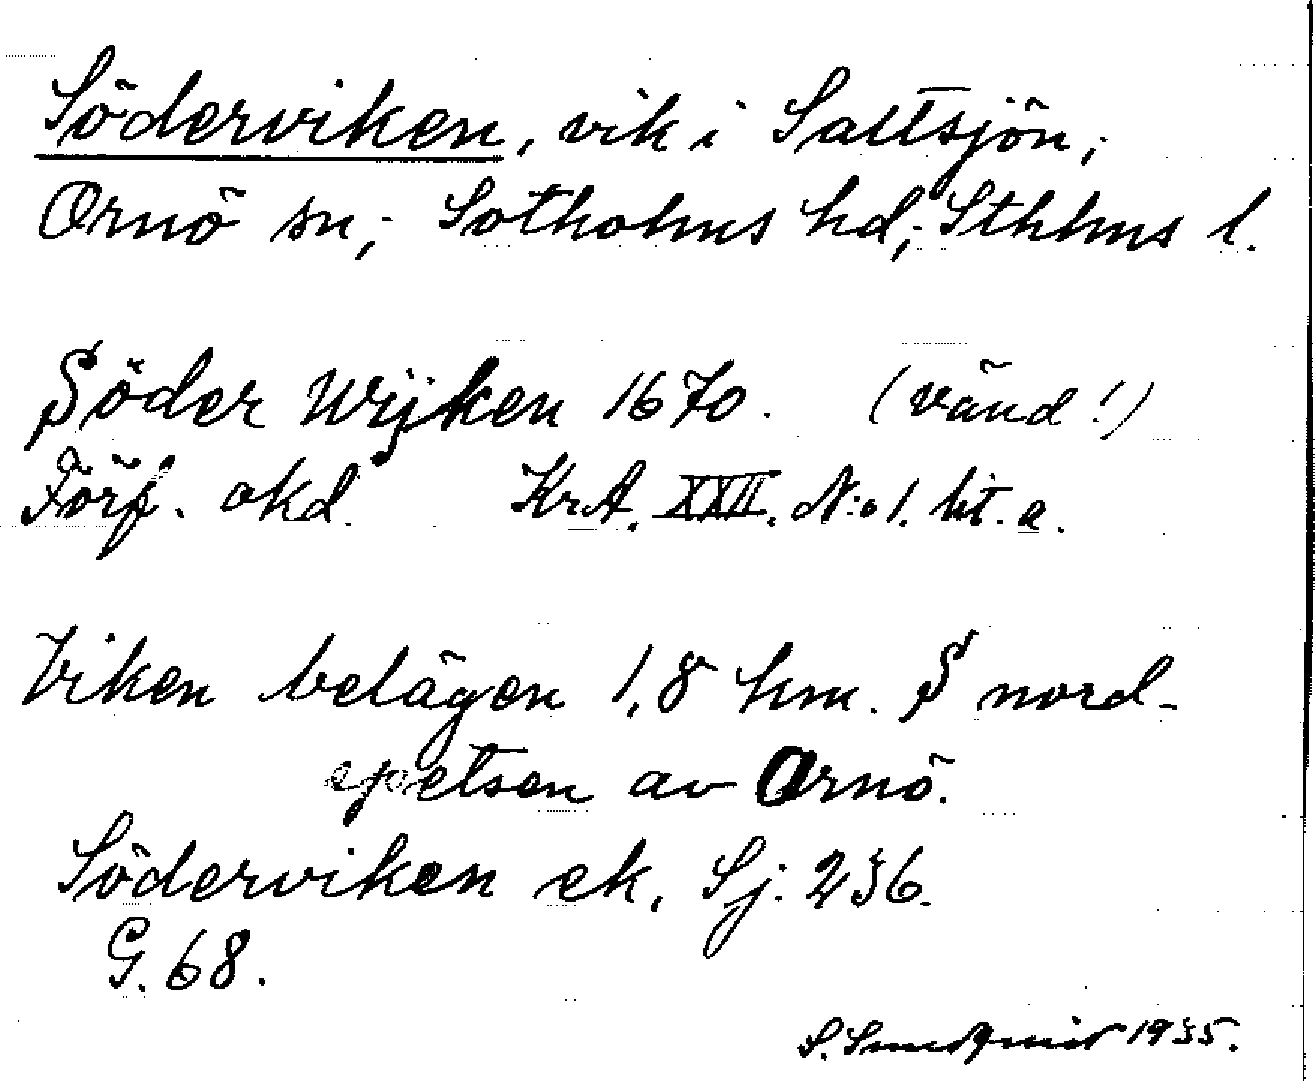 Söderviken, vik i Saltsjön,
Ornö sn, Sotholms hd, Sthlms l.
Söder Wijken 1670. (vänd!)
Förf. okd. KrA. XXII. N:o 1. lit. a.
Viken belägen 1,8 km. S nord-
spetsen av Ornö.
Söderviken ek. Sj. 236.
G. 68.
S. Sundquist 1935.